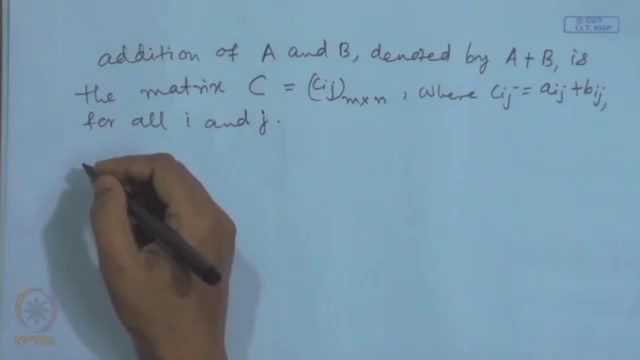 © CET
I.I.T. KGP
addition of A and B, denoted by A + B, is
the matrix C = (cij)m×n, where cij = aij + bij,
for all i and j.
NPTEL